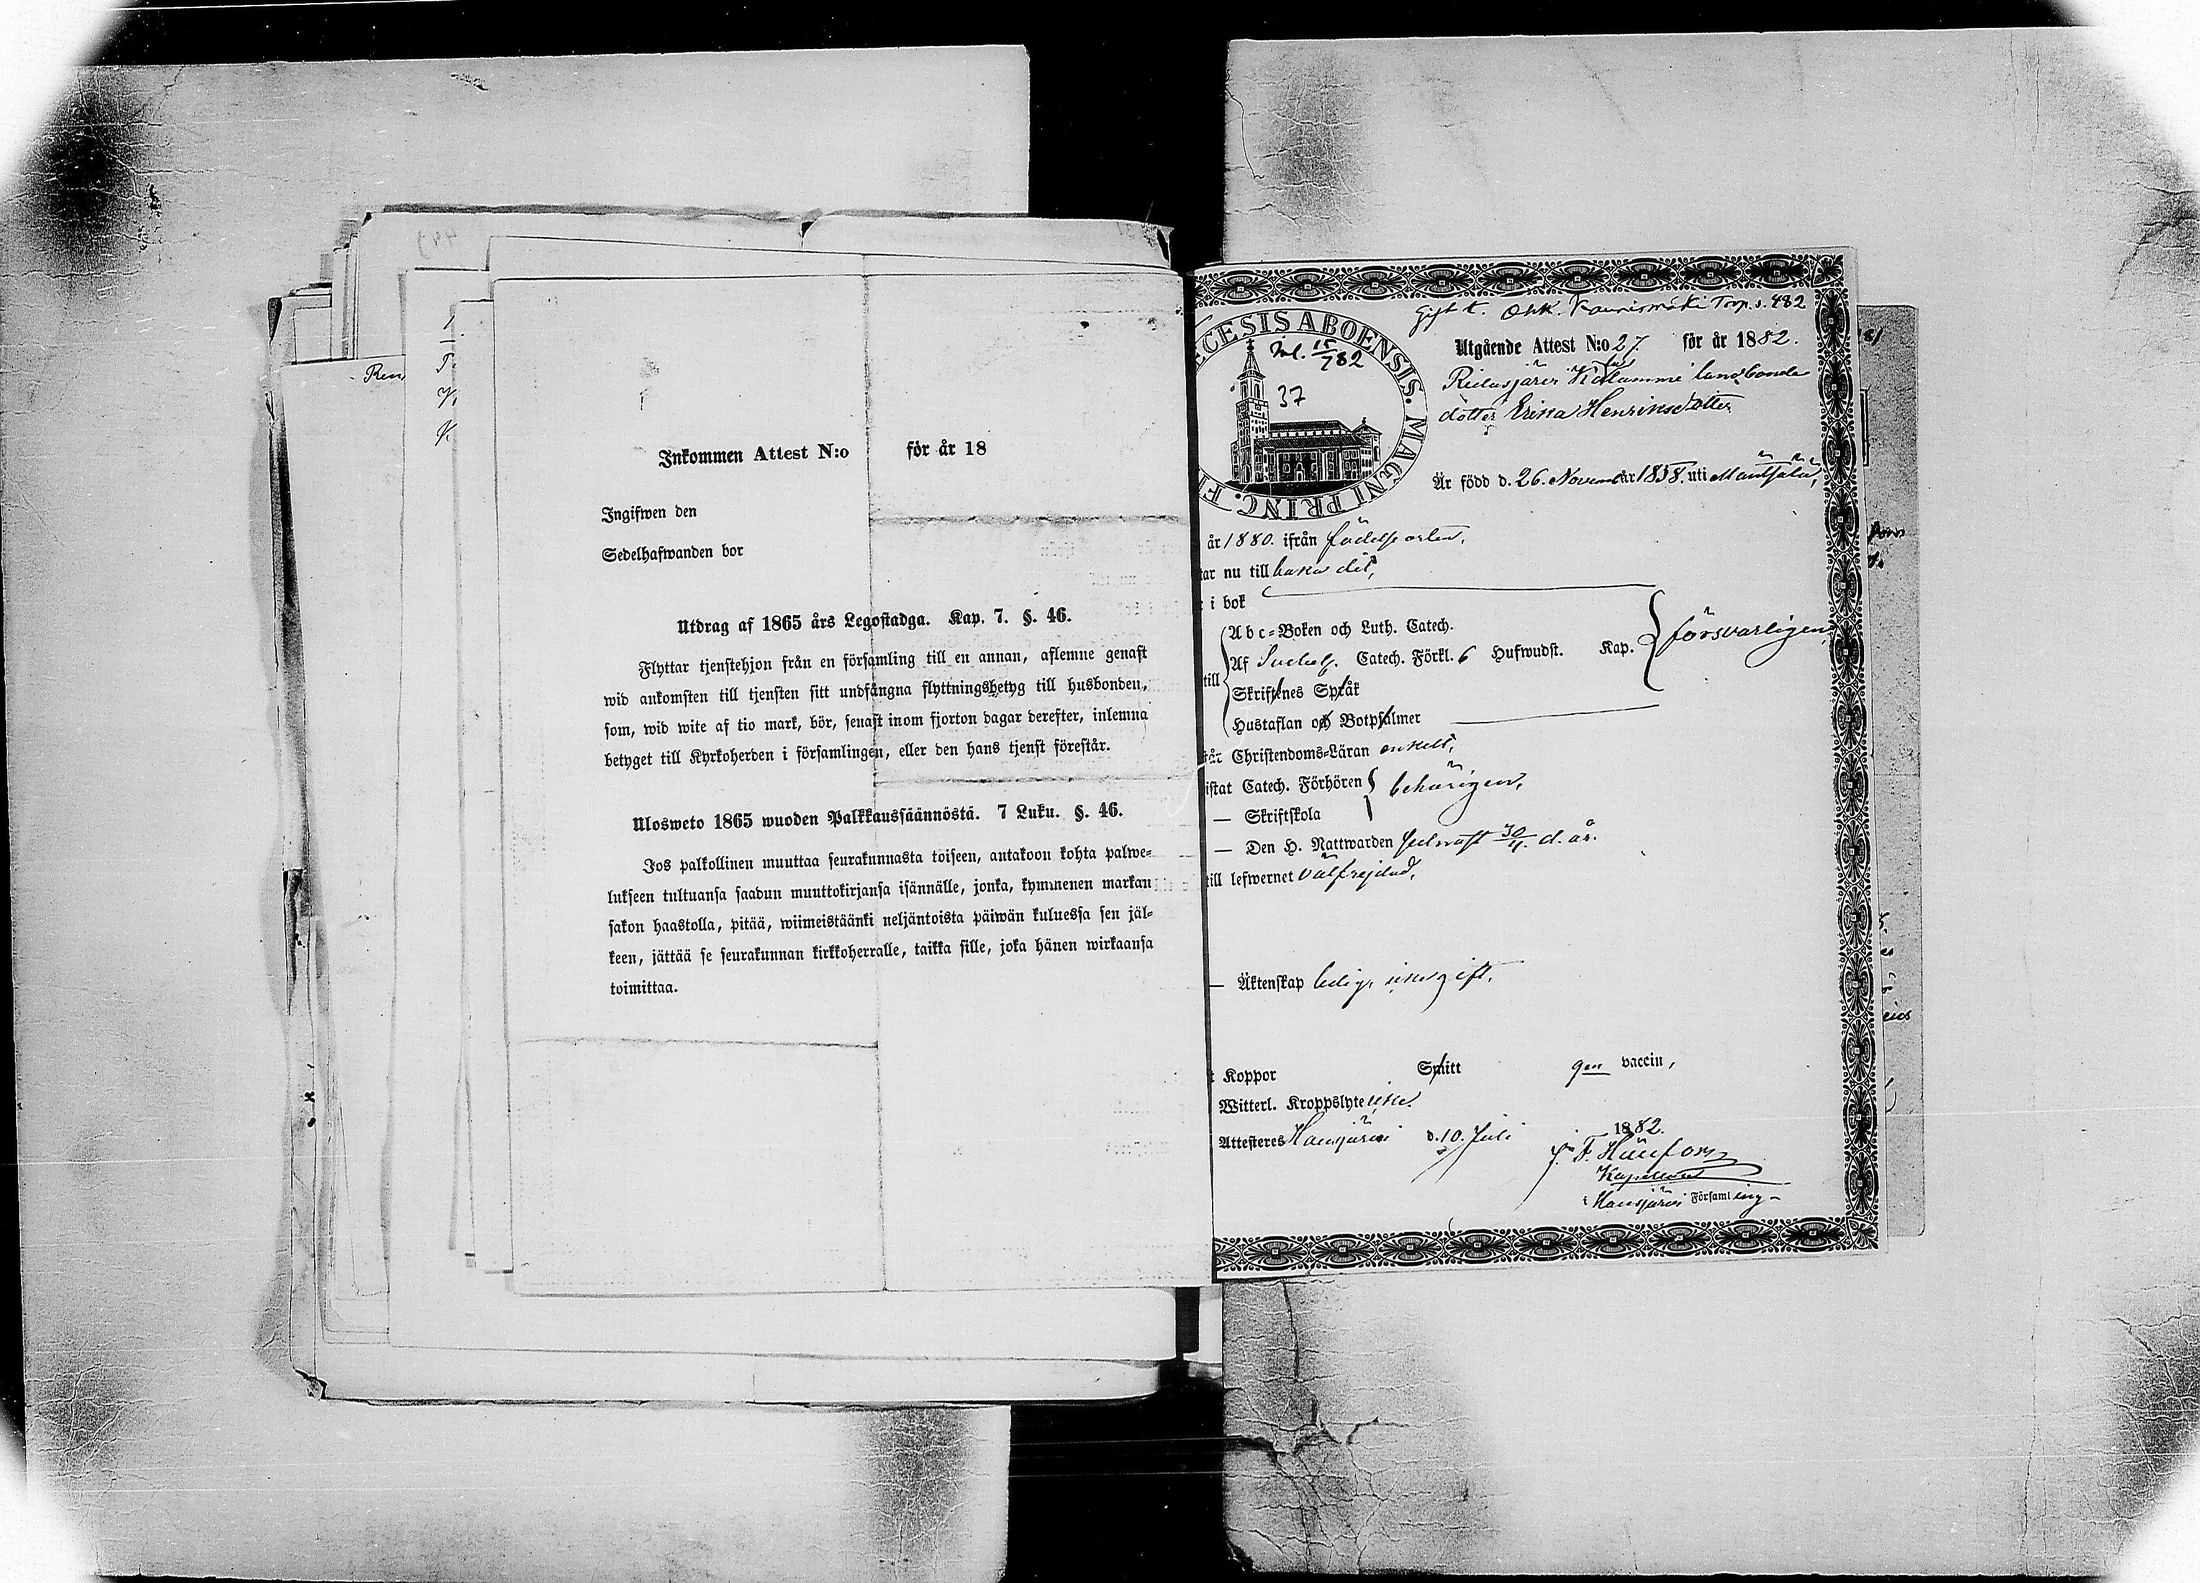 Inkommen Attest N:o för år 18
Ingifwen den
Sedelhafwanden bor
Utdrag af 1865 års Legostadga. Kap. 7. §. 46.
Flyttar tjenstehjon från en församling till en annan, aflemne genast
wid ankomsten till tjensten sitt undfångna flyttningsbetyg till husbonden,
som, wid wite af tio mark, bör, senast inom fjorton dagar derefter, inlemna
betyget till Kyrkoherden i församlingen, eller den hans tjenst förestår.
Ulosweto 1865 wuoden Palkkaussäännöstä. 7 Luku. §. 46.
Jos palkollinen muuttaa seurakunnasta toiseen, antakoon kohta palwe-
lukseen tultuansa saadun muuttokirjansa isännälle, jonka, kymmenen markan
sakon haastolla, pitää, wiimeistäänki neljäntoista päiwän kuluessa sen jäl-
keen, jättää se seurakunnan kirkkoherralle, taikka sille, joka hänen wirkaansa
toimittaa.
Gift t. Ohk. Kaurismäki Torp. s. 482
ECESIS ABOENSIS. MAGNI PRINC. FI
Inl. 15/7 82
37
Utgående Attest N:o 27 för år 1882.
landbonde
dotter Erika Henriksdotter
Är född d. 26. Novem år 1858. uti Mäntsälä,
år 1880. ifrån födelseorten,
tar nu till baka dit,
i bok
Abc-Boken och Luth. Catech.
Af Svebel. Catech. Förkl. 6 Hufwudst. Kap. försvarligen
till
Skriftenes Språk
Hustaflan och Botpsalmer
står Christendoms-Läran enkelt,
istat Catech. Förhören behörigen,
— Skriftskola
— Den H. Nattwarden sednast 30/4 d. år.
till lefwernet välfrejdad,
— Äktenskap ledig, ogift,
t Koppor Smitt gen vaccin,
Witterl. Kroppslyte icke.
Attesteras Hausjärvi d. 10. Juli 1882.
Kapellan
i Hausjärvi Församling